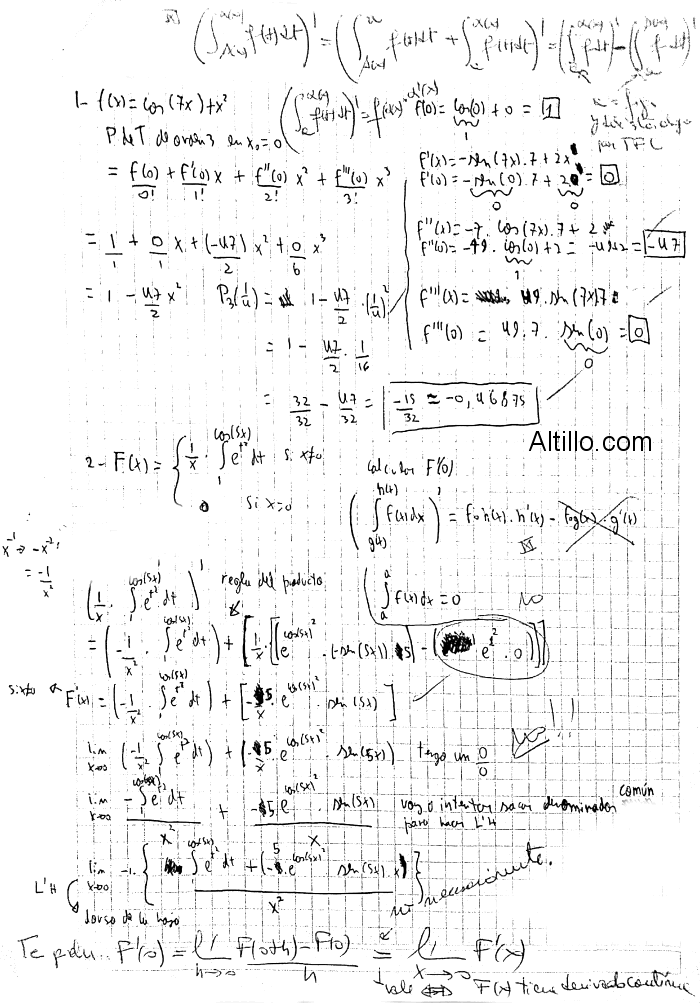 (∫_{β(x)}^{α(x)} f(t)dt)' = (∫_{β(x)}^{a} f(t)dt + ∫_{a}^{α(x)} f(t)dt)' = (∫^{α(x)} f dt)' - (∫^{β(x)} f dt)'
1- f(x) = cos(7x) + x²
f(0) = cos(0) + 0 = 1
P de T de orden 3 en x₀=0
por TFC
= f(0)/0! + f'(0)/1! x + f''(0)/2! x² + f'''(0)/3! x³
f'(x) = -sen(7x).7 + 2x
f'(0) = -sen(0).7 + 2.0 = 0
f''(x) = -7.cos(7x).7 + 2
= 1/1 + 0/1 x + (-47)/2 x² + 0/6 x³
f''(0) = -49.cos(0) + 2 = -49+2 = -47
= 1 - 47/2 x² P₃(1/4) = 1 - 47/2 . (1/4)²
f'''(x) = 49.sen(7x)7
= 1 - 47/2 . 1/16
f'''(0) = 49.7.sen(0) = 0
= 32/32 - 47/32 = -15/32 ≃ -0,46875
Altillo.com
2- F(x) = { 1/x . ∫_{1}^{cos(5x)} e^{t²} dt si x≠0
0 si x=0
calcular F'(0)
(∫_{g(x)}^{h(x)} f(x)dx)' = f∘h(x).h'(x) - f∘g(x).g'(x)
x⁻¹ → -x⁻²
= -1/x²
(1/x . ∫_{1}^{cos(5x)} e^{t²} dt)' regla del producto
∫_{a}^{a} f(x)dx = 0 NO
= (-1/x² . ∫_{1}^{cos(5x)} e^{t²} dt) + [1/x . [(e^{cos(5x)²} . (-sen(5x)).5) - (e^{1²} . 0)]]
si x≠0 F'(x) = (-1/x² . ∫_{1}^{cos(5x)} e^{t²} dt) + [-5/x . e^{cos(5x)²} . sen(5x)]
lim x→0 (-1/x² ∫_{1}^{cos(5x)} e^{t²} dt) + (-5/x . e^{cos(5x)²} . sen(5x)) tengo un 0/0
NO!!!
lim x→0 -∫_{1}^{cos(5x)} e^{t²} dt / x² + -5.e^{cos(5x)²} . sen(5x) / x voy a intentar sacar denominador común
para hacer L'H
lim x→0 -1.{ ∫_{1}^{cos(5x)} e^{t²} dt + (-5.e^{cos(5x)²} sen(5x).x) / x² } no necesariamente.
L'H
dorso de la hoja
F'(0) = lím h→0 F(0+h)-F(0) / h = lím x→0 F'(x)
vale ⟺ F(x) tiene derivada continua